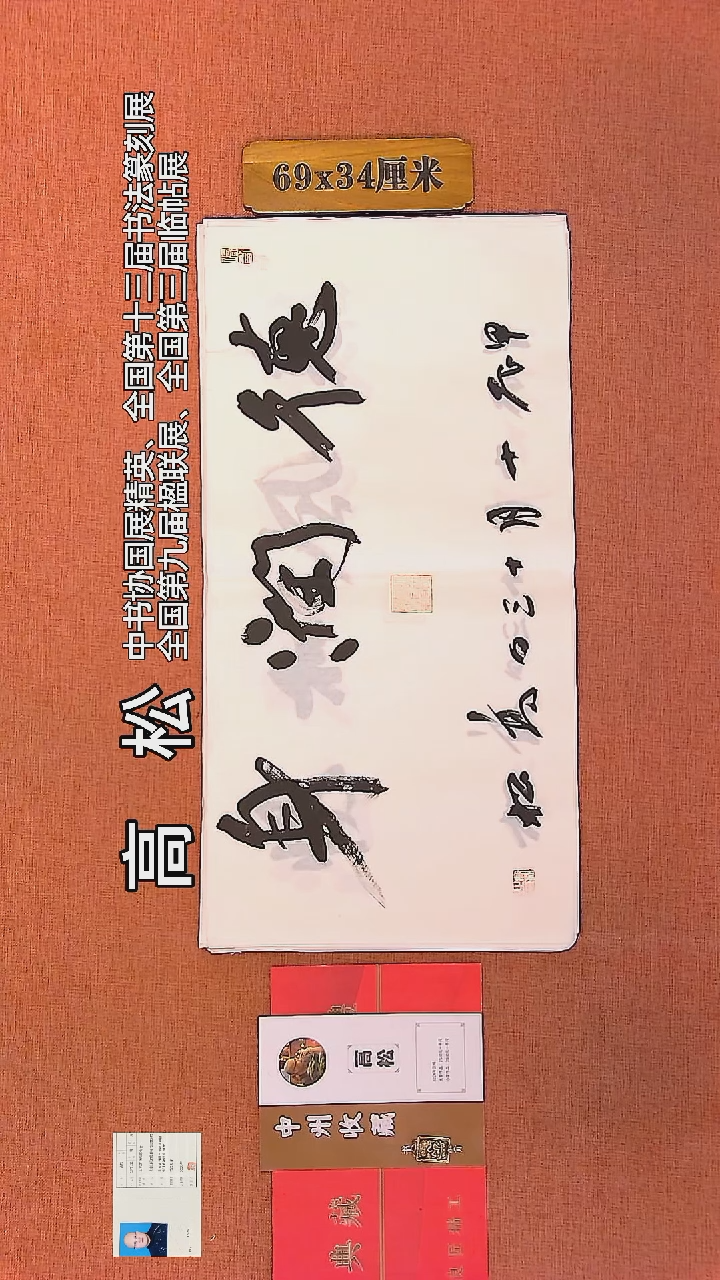 69x34厘米
高 松
中书协国展精英、全国第十三届书法篆刻展
全国第九届楹联展、全国第三届临帖展
德润身
甲辰十月十三日高松
高松
中州收藏
典藏